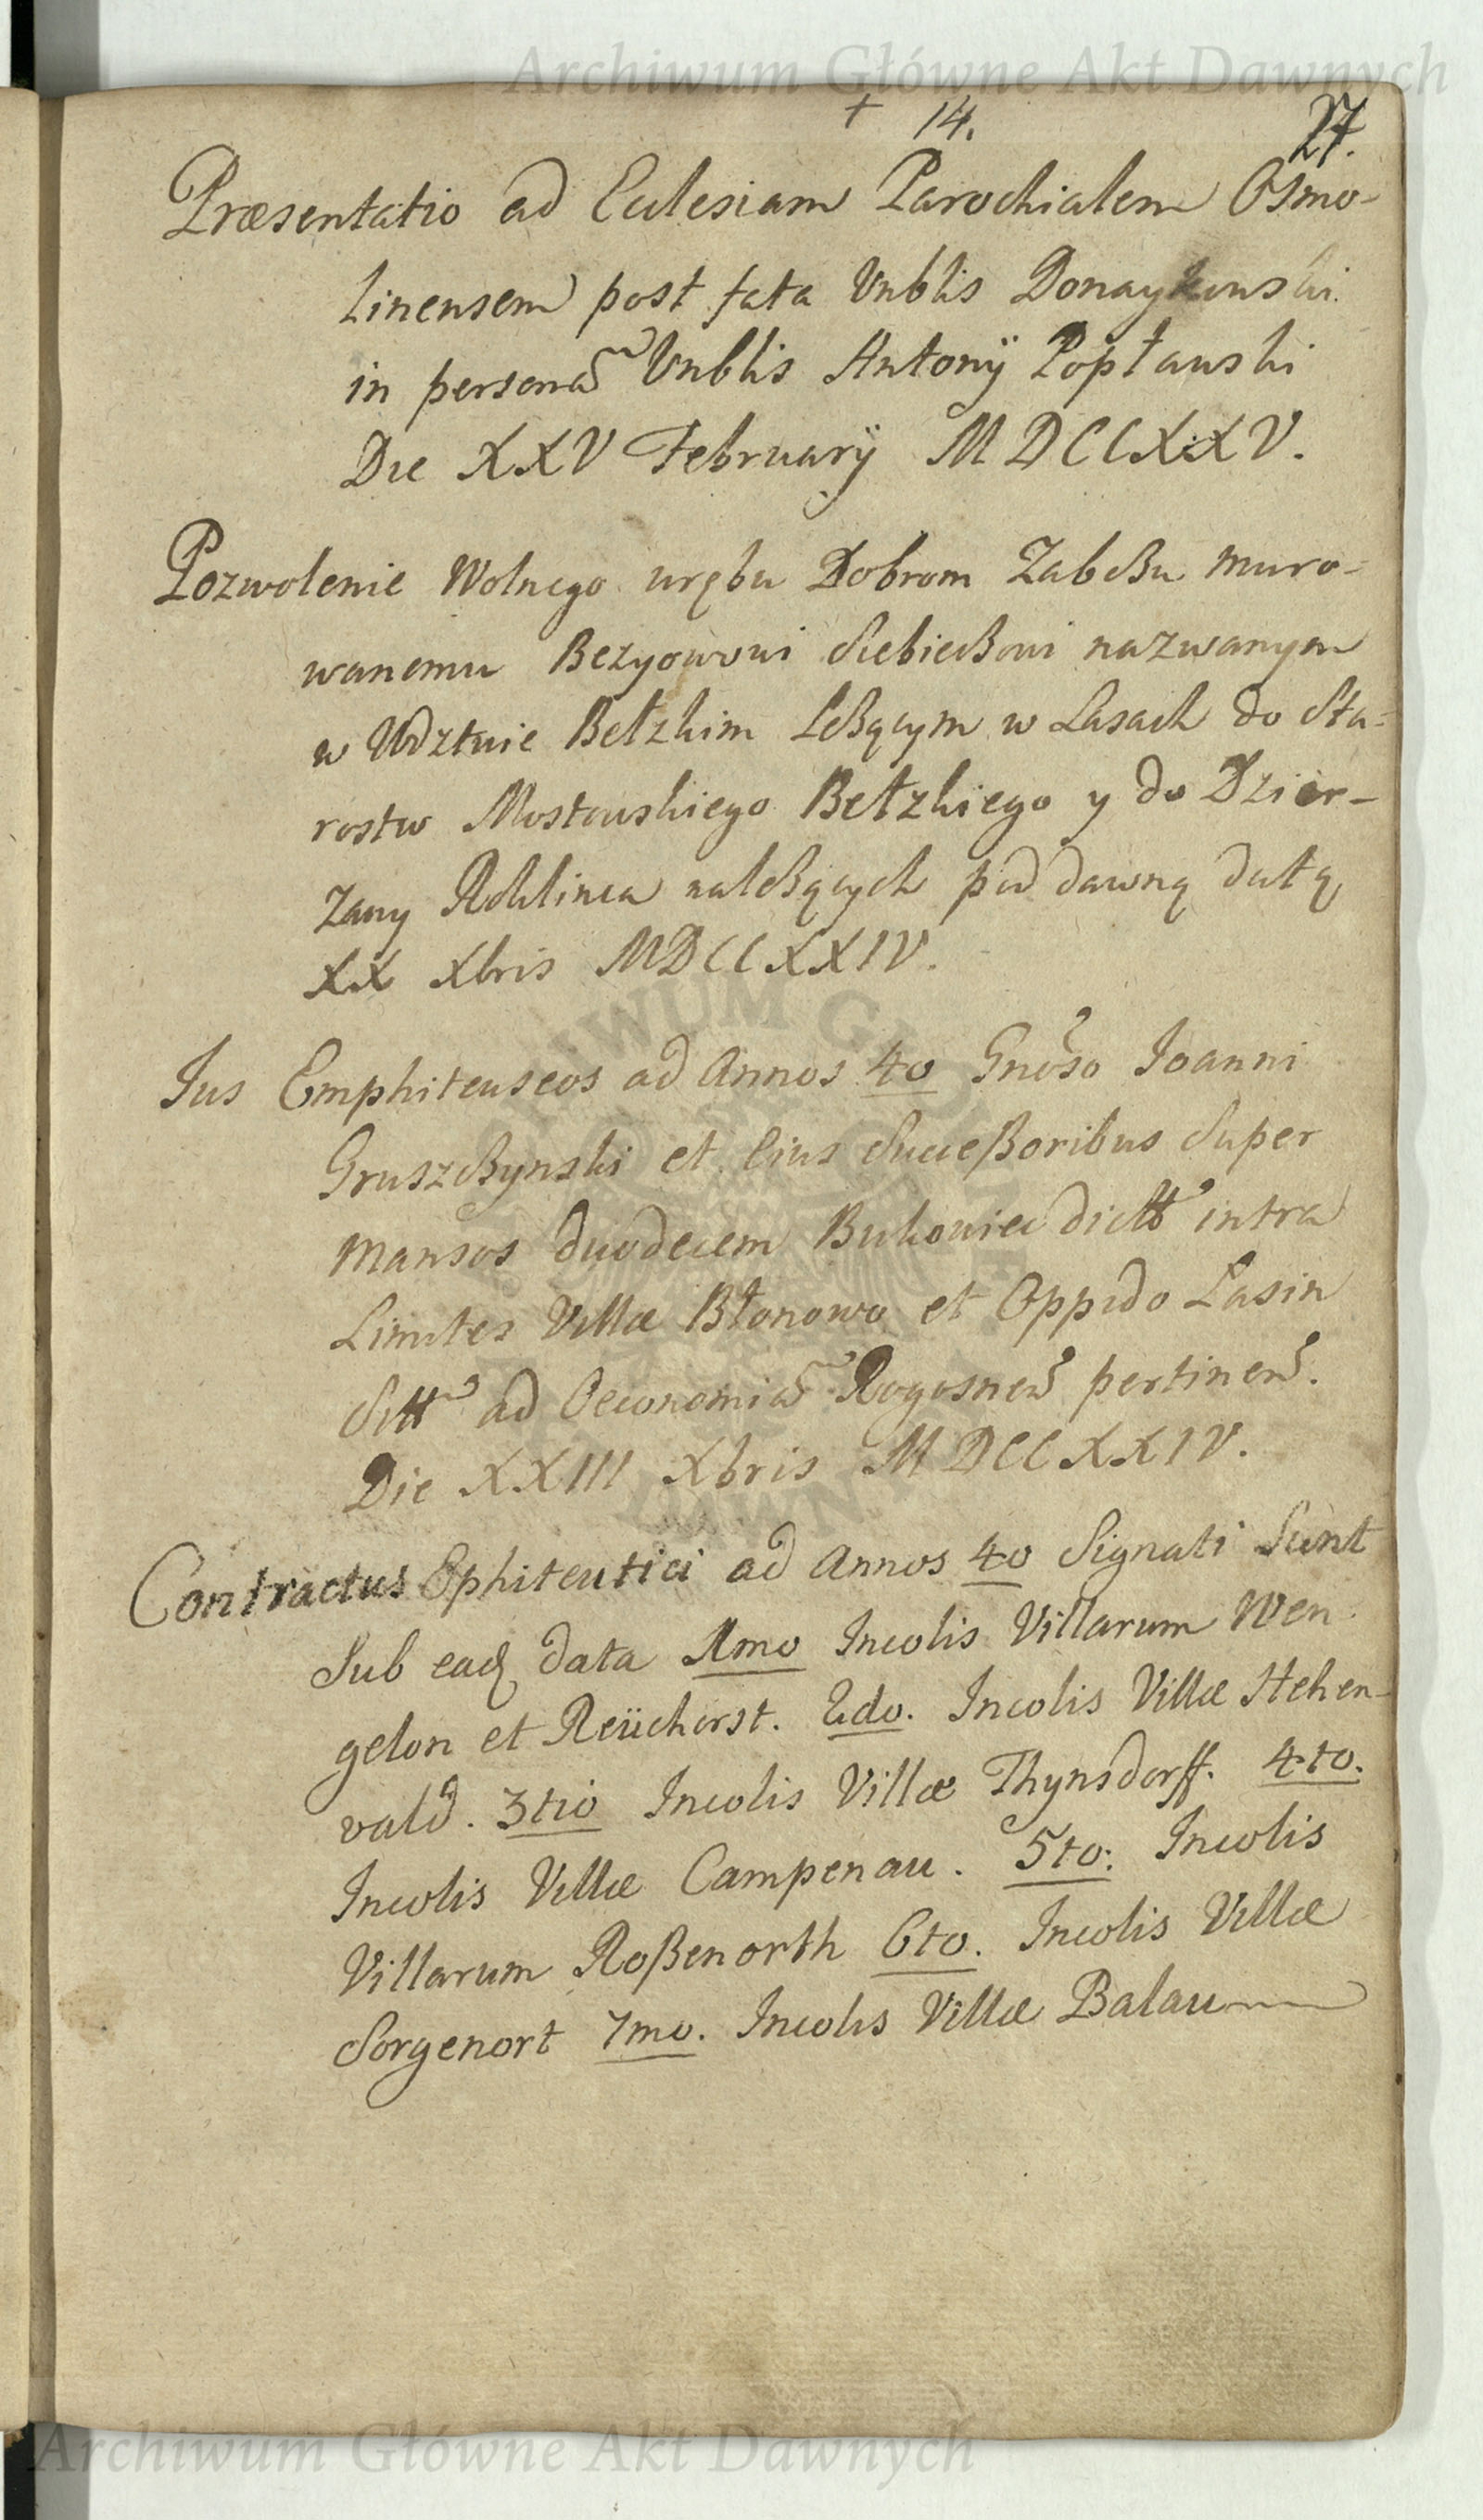 Archiwum Główne Akt Dawnych
+ 14.
27.
Præsentatio ad Ecclesiam Parochialem Osmo-
linensem post fata Vnblis Donaykowski
in personã Vnblis Antonÿ Popławski
Die XXV Februarÿ MDCCXXV.
Pozwolenie Wolnego urębu Dobrom Zabcßu muro-
wanemu Bezyowowi Siebieckowi nazwanym
w Wdztwie Bełzkim Leßącym w Lasach do Sta-
rostw Mostowskiego Bełzkiego y do Dzier-
zawy Rohlinca naleßących pod dawną datą
XX Xbris MDCCXXIV.
Jus Emphiteuseos ad Annos 40 Gnõso Joanni
Gruszcßynski et Eius Succeßoribus Super
Mansos duodecem Bukowiec dictt intra
Limites Villæ Błonowo et Oppido Lasin
Sitt ad Oeconomiã Rogosneñ pertineñ.
Die XXIII Xbris MDCCXXIV.
Contractus Ephiteutici ad Annos 40 Signati Sunt
Sub eadq data 1mo Incolis Villarum Wen
gelon et Reücherst. 2do. Incolis Villæ Hehen-
vald. 3tio Incolis Villæ Thynsdorff. 4to.
Incolis Villæ Campenau. 5to: Incolis
Villarum Roßenorth 6to. Incolis Villæ
Sorgenort 7mo. Incolis Villæ Balau
Archiwum Główne Akt Dawnych